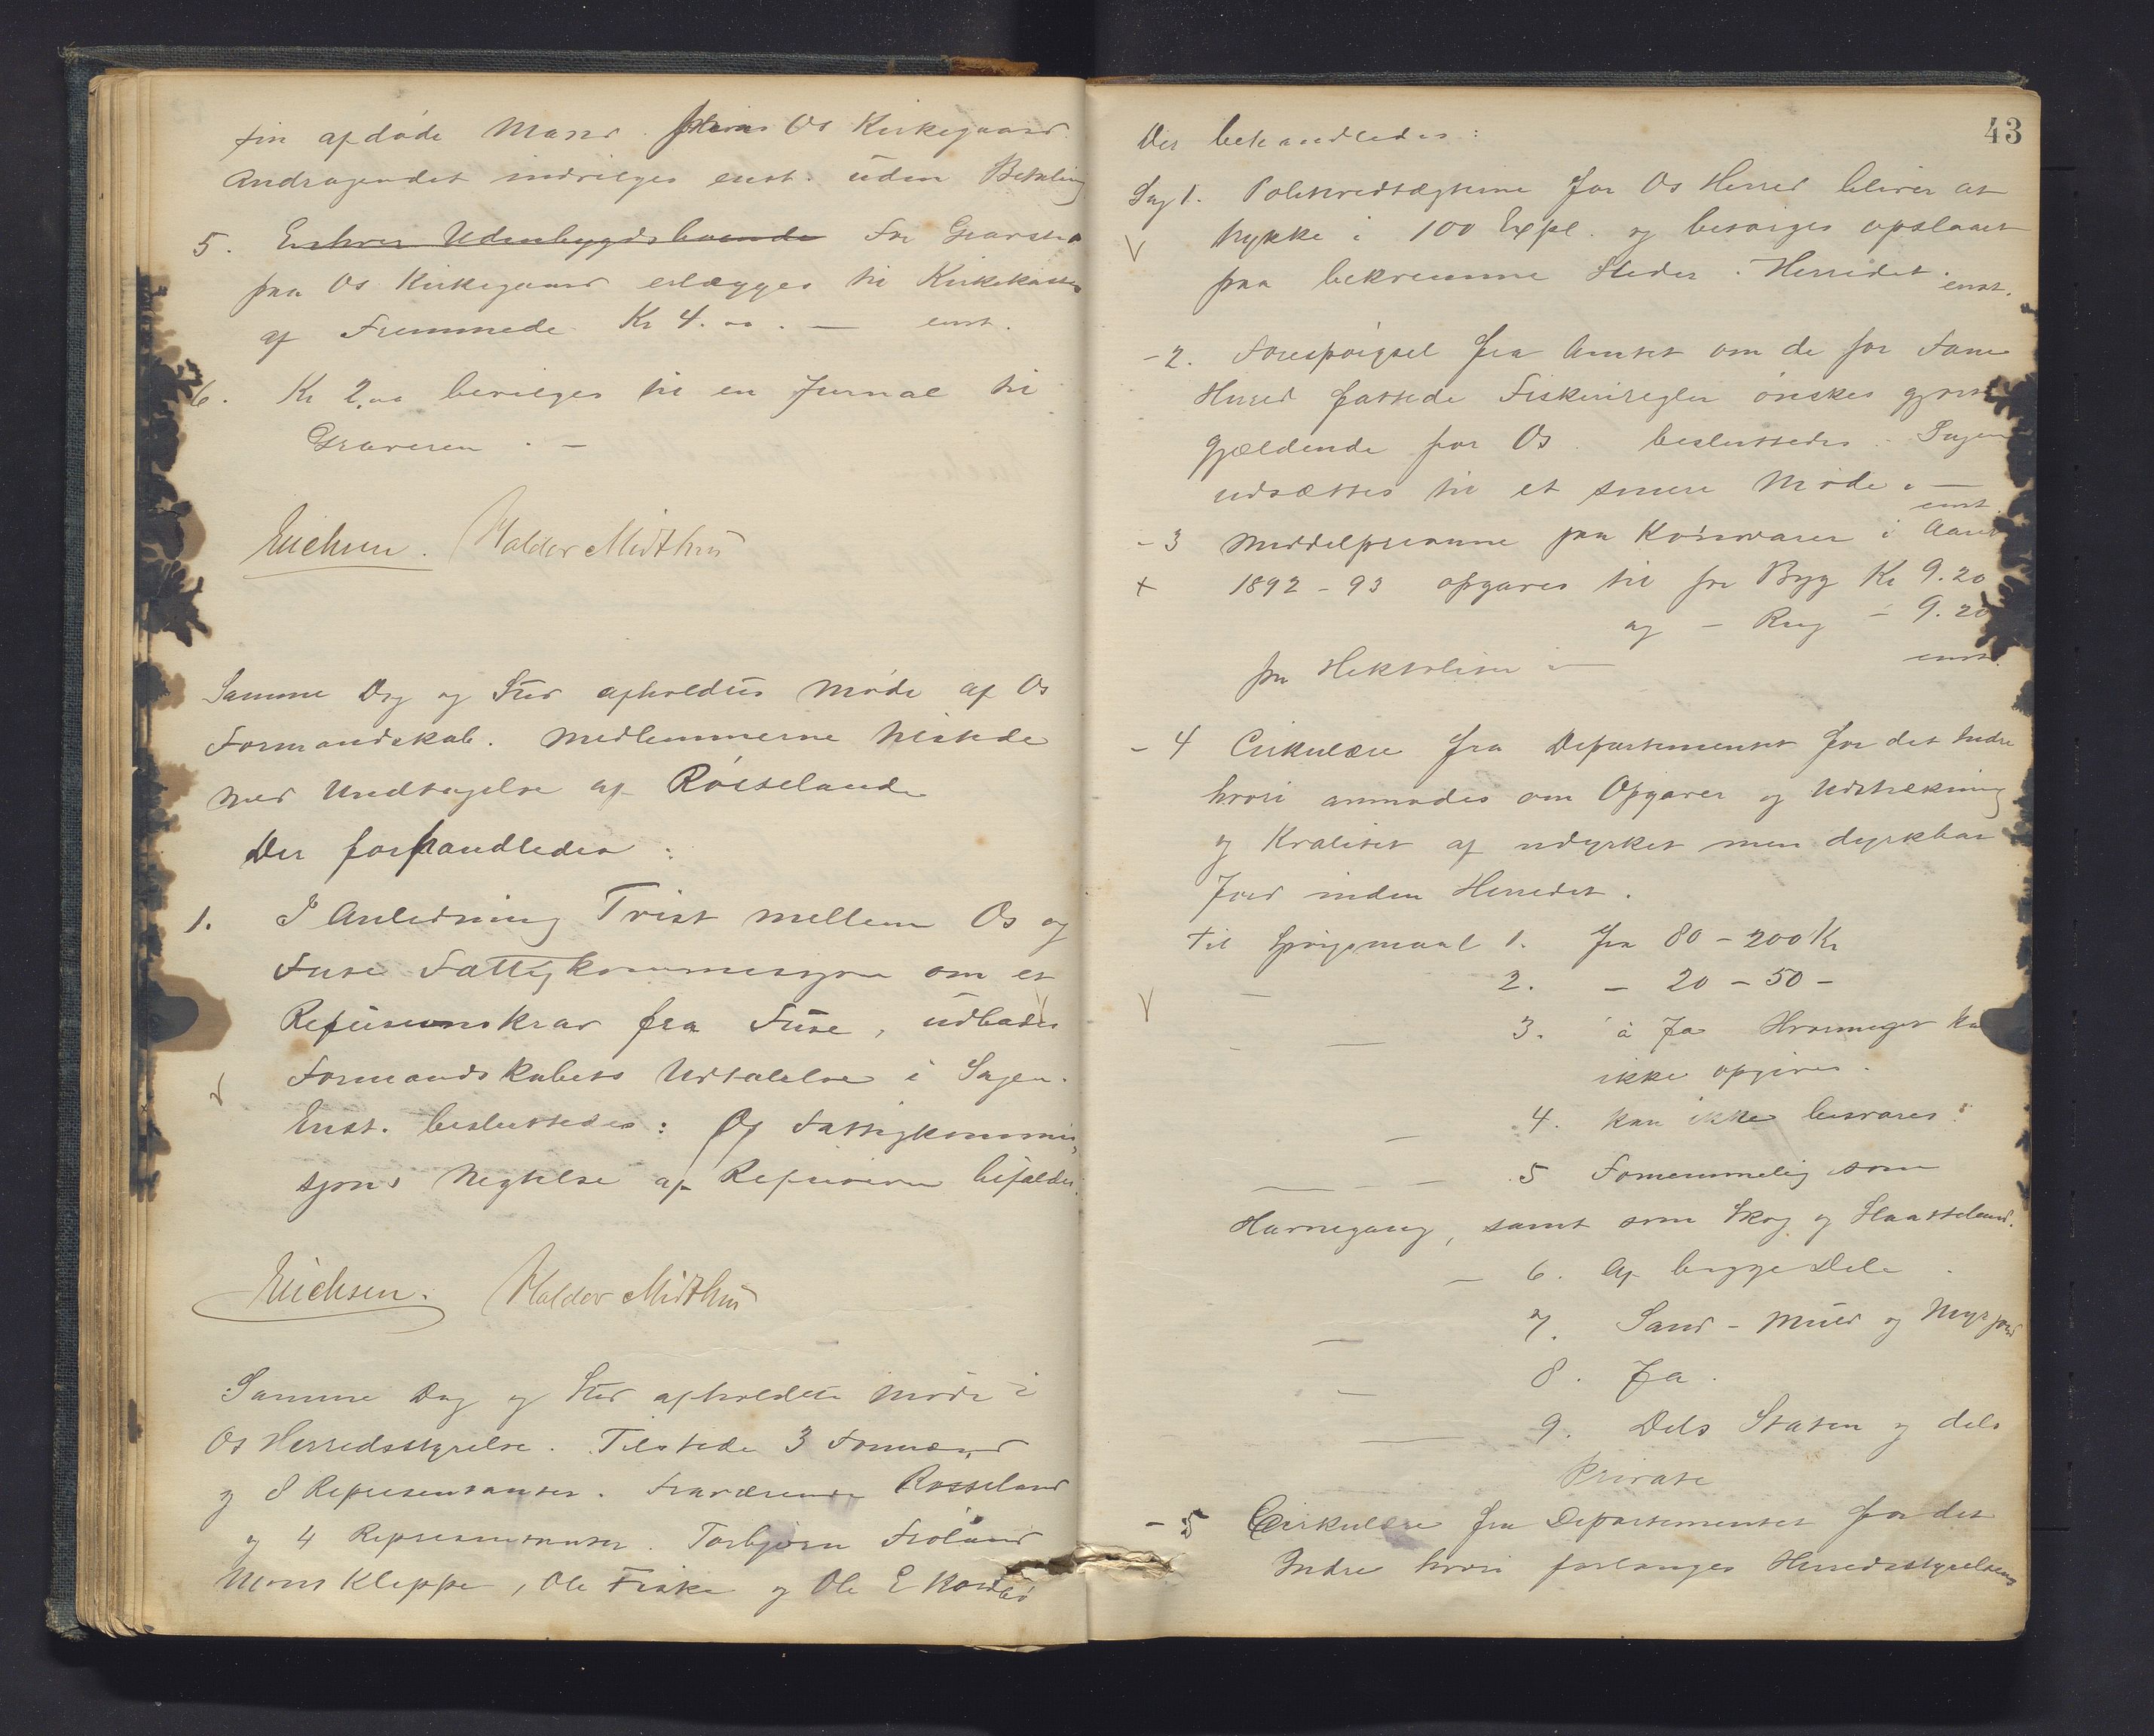 sin afdøde Mand paa Os Kirkegaard
Andragendet indvilges enst. uden Betaling
5. Enhver Udenbygdsboende For Gravsted
paa Os Kirkegaard erlægges til Kirkekassen
af Fremmede Kr 4.00. — enst.
6. Kr 2,00 bevilges til en Jurnal til
Graveren. —
Erichsen. Haldor Midthus
Samme Dag og Sted afholdtes Møde af Os
Formandskab. Medlemmerne tilstede
med Undtagelse af Røsseland
Der forhandledes:
1. I Anledning Tvist mellem Os og
Fuse Fattigkommission om et
Refusionskrav fra Fuse, udbades
Formandskabets Udtalelse i Sagen.
Enst. besluttedes: Os Fattigkommis-
sjons Negtelse af Refusionen bifaldes.
Erichsen. Haldor Midthus
Samme Dag og Sted afholdtes Møde i
Os Herredsstyrelse. Tilstede 3 Formænd
og 8 Repræsentanter. Fraværende Røsseland
og 4 Repræsentanter. Torbjørn Frøland
Mons Kleppe, Ole Fiske og Ole E
43
Der behandledes:
Sag 1. Politivedtægterne for Os Herred bliver at
trykke i 100 Expl. og besørges opslaaet
paa bekvemme Steder i Herredet. enst.
- 2. Forespørgsel fra Amtet om de for Fane
Herred fattede Fiskeriregler ønskes gjort
gjældende for Os. besluttedes: Sagen
udsættes til et senere Møde. — enst.
- 3 Middelpriserne paa Kornvarer i Aaret
1892 - 93 opgaves til for Byg Kr 9.20
og - Rug - 9.20
pr Hektoliter — enst.
- 4 Cirkulære fra Departementet for det Indre
hvori anmodes om Opgaver og Udstrækning
og Kvalitet af udyrket men dyrkbar
Jord inden Herredet.
Til Spørgsmaal 1. fra 80 - 200 Kr
— 2. - 20 - 50 -
- — 3. a Ja Hvormeget kan
ikke opgives.
— 4. kan ikke besvares.
— - - 5 Fornemmelig som
Havnegang, samt som Skog og Slaatteland.
- 6. Af begge Dele.
— 7. Sand - Muld og Myrjord
— 8. Ja.
— 9. Dels Staten og dels
Private
- 5 Cirkulære fra Departementet for det
Indre hvori forlanges Herredsstyrelsens